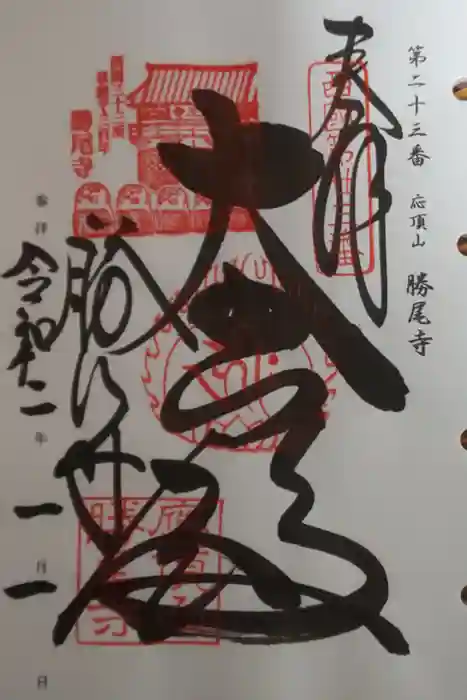 第二十三番 応頂山 勝尾寺
奉拝
西国第廿三番
大悲殿
勝尾寺
勝尾寺
参拝 令和二年一月一日